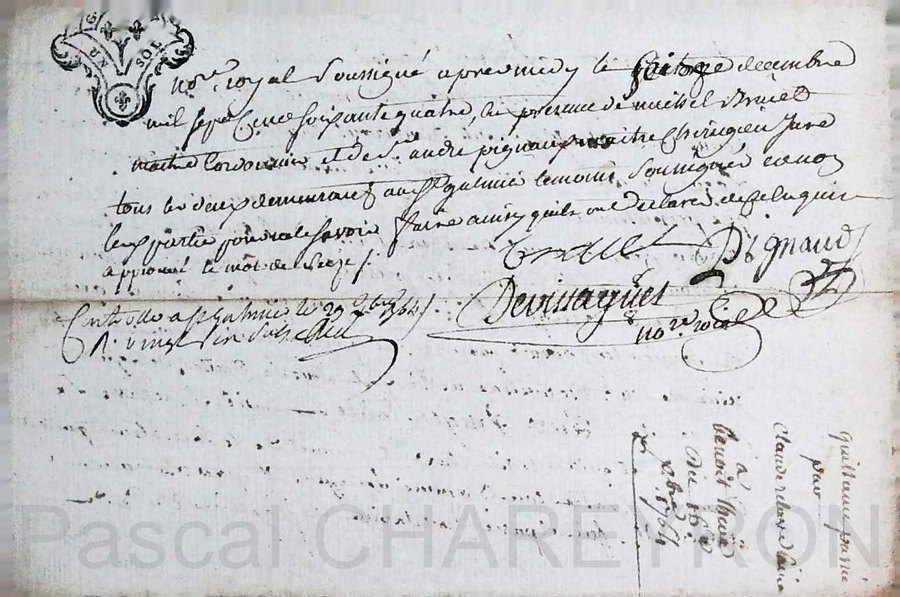 UN SOL
no.re royal Soussigné apres midy le seize decembre
mil sept Cent soixante quatre, en presence de michel Bruel
maitre Cordonnier et de Sr. andre pignaud maitre Chirugien Juré
tous les deux demeurants a St galmier temoins Soussignés et non
les parties pour ne le Savoir faire ainsy quils ont declaré de ce Enquis
approuvé le mot de Seize /.
Bruel Pignaud
no.re royal
Controllé a St galmier le 29 Xbre 1764
R. vingt six sols
quittance passé
par
Claude chare
a
benoit
du 16e
Xbre 1764
Pascal CHAREYRON